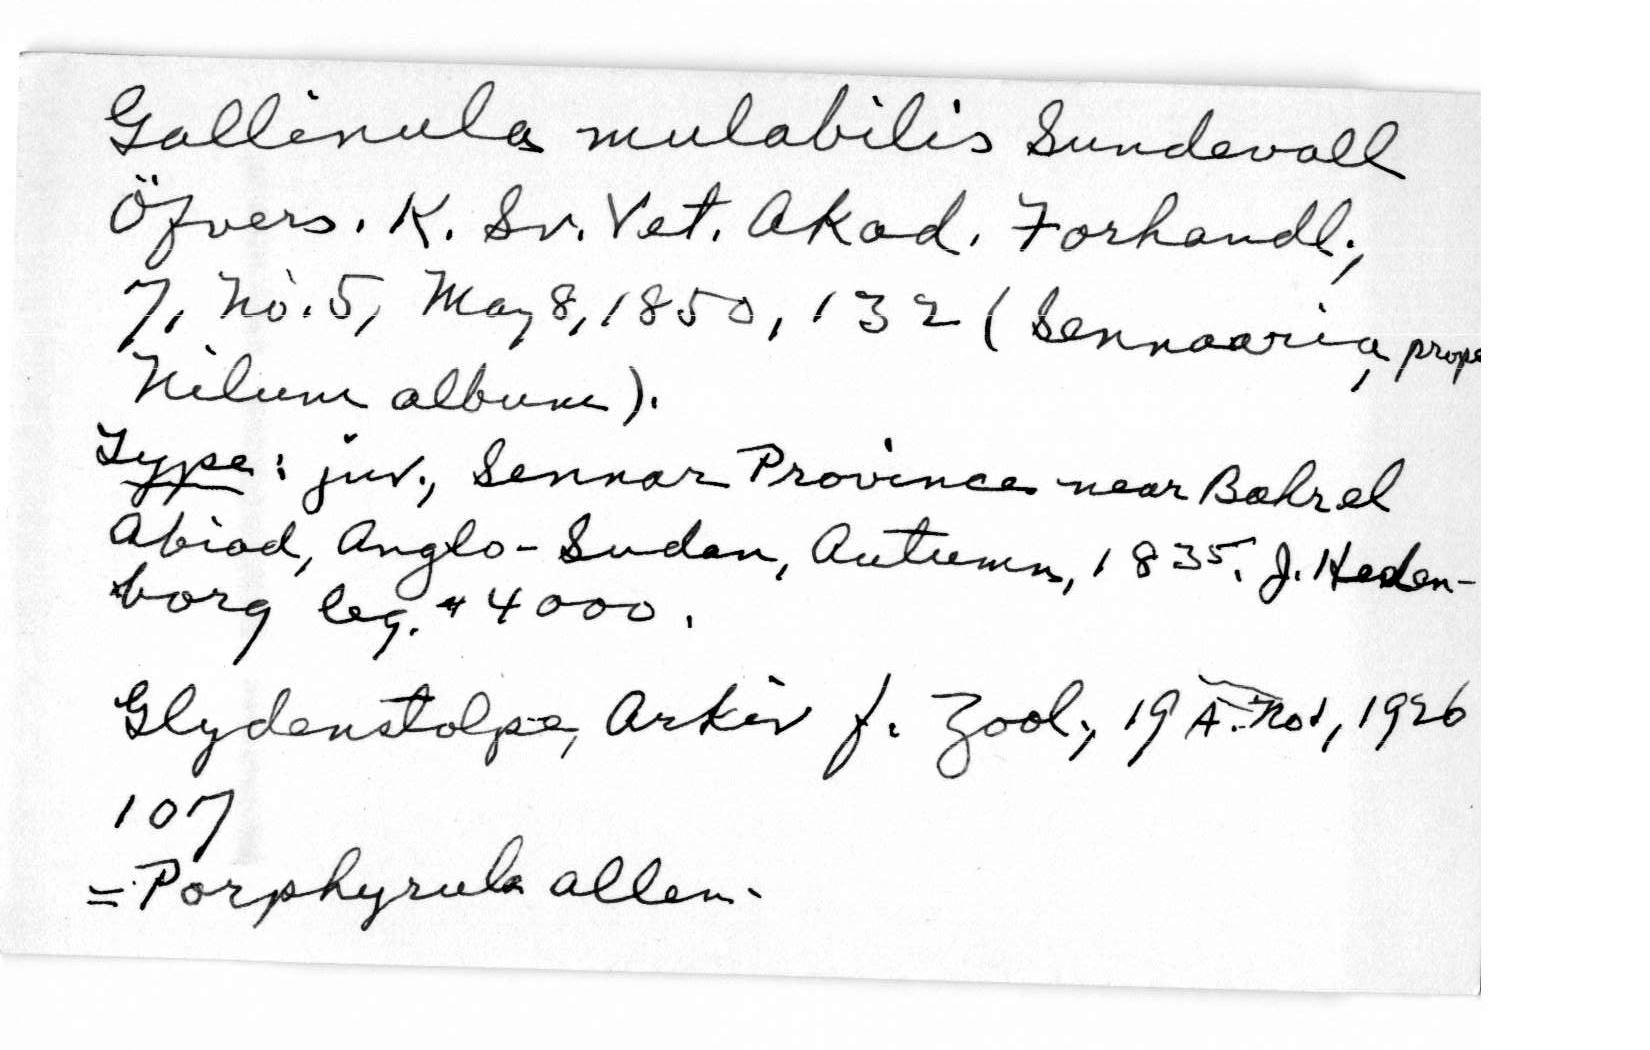 Gallinula mulabilis Sundevall
Öfvers. K. Sv. Vet. Akad. Forhandl.,
7, No. 5, May 8, 1850, 132 (Sennaaria, prope
Nilum album).
Type: juv., Sennar Province near Bahrel
Abiad, Anglo-Sudan, Autumn, 1835. J. Heden-
borg leg. #4000.
Glydenstolpe, Arkiv f. Zool., 19 A. No1, 1926
107
= Porphyrula alleni